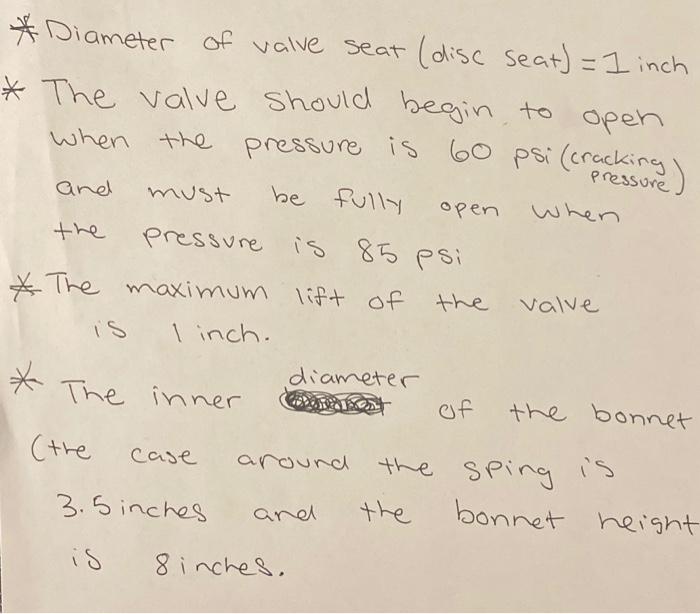 * Diameter of valve seat (disc seat) = 1 inch
* The valve should begin to open
when the pressure is 60 psi (cracking pressure)
and must be fully open when
the pressure is 85 psi
* The maximum lift of the valve
is 1 inch.
* The inner diameter of the bonnet
(the case around the sping is
3.5 inches and the bonnet height
is 8 inches.